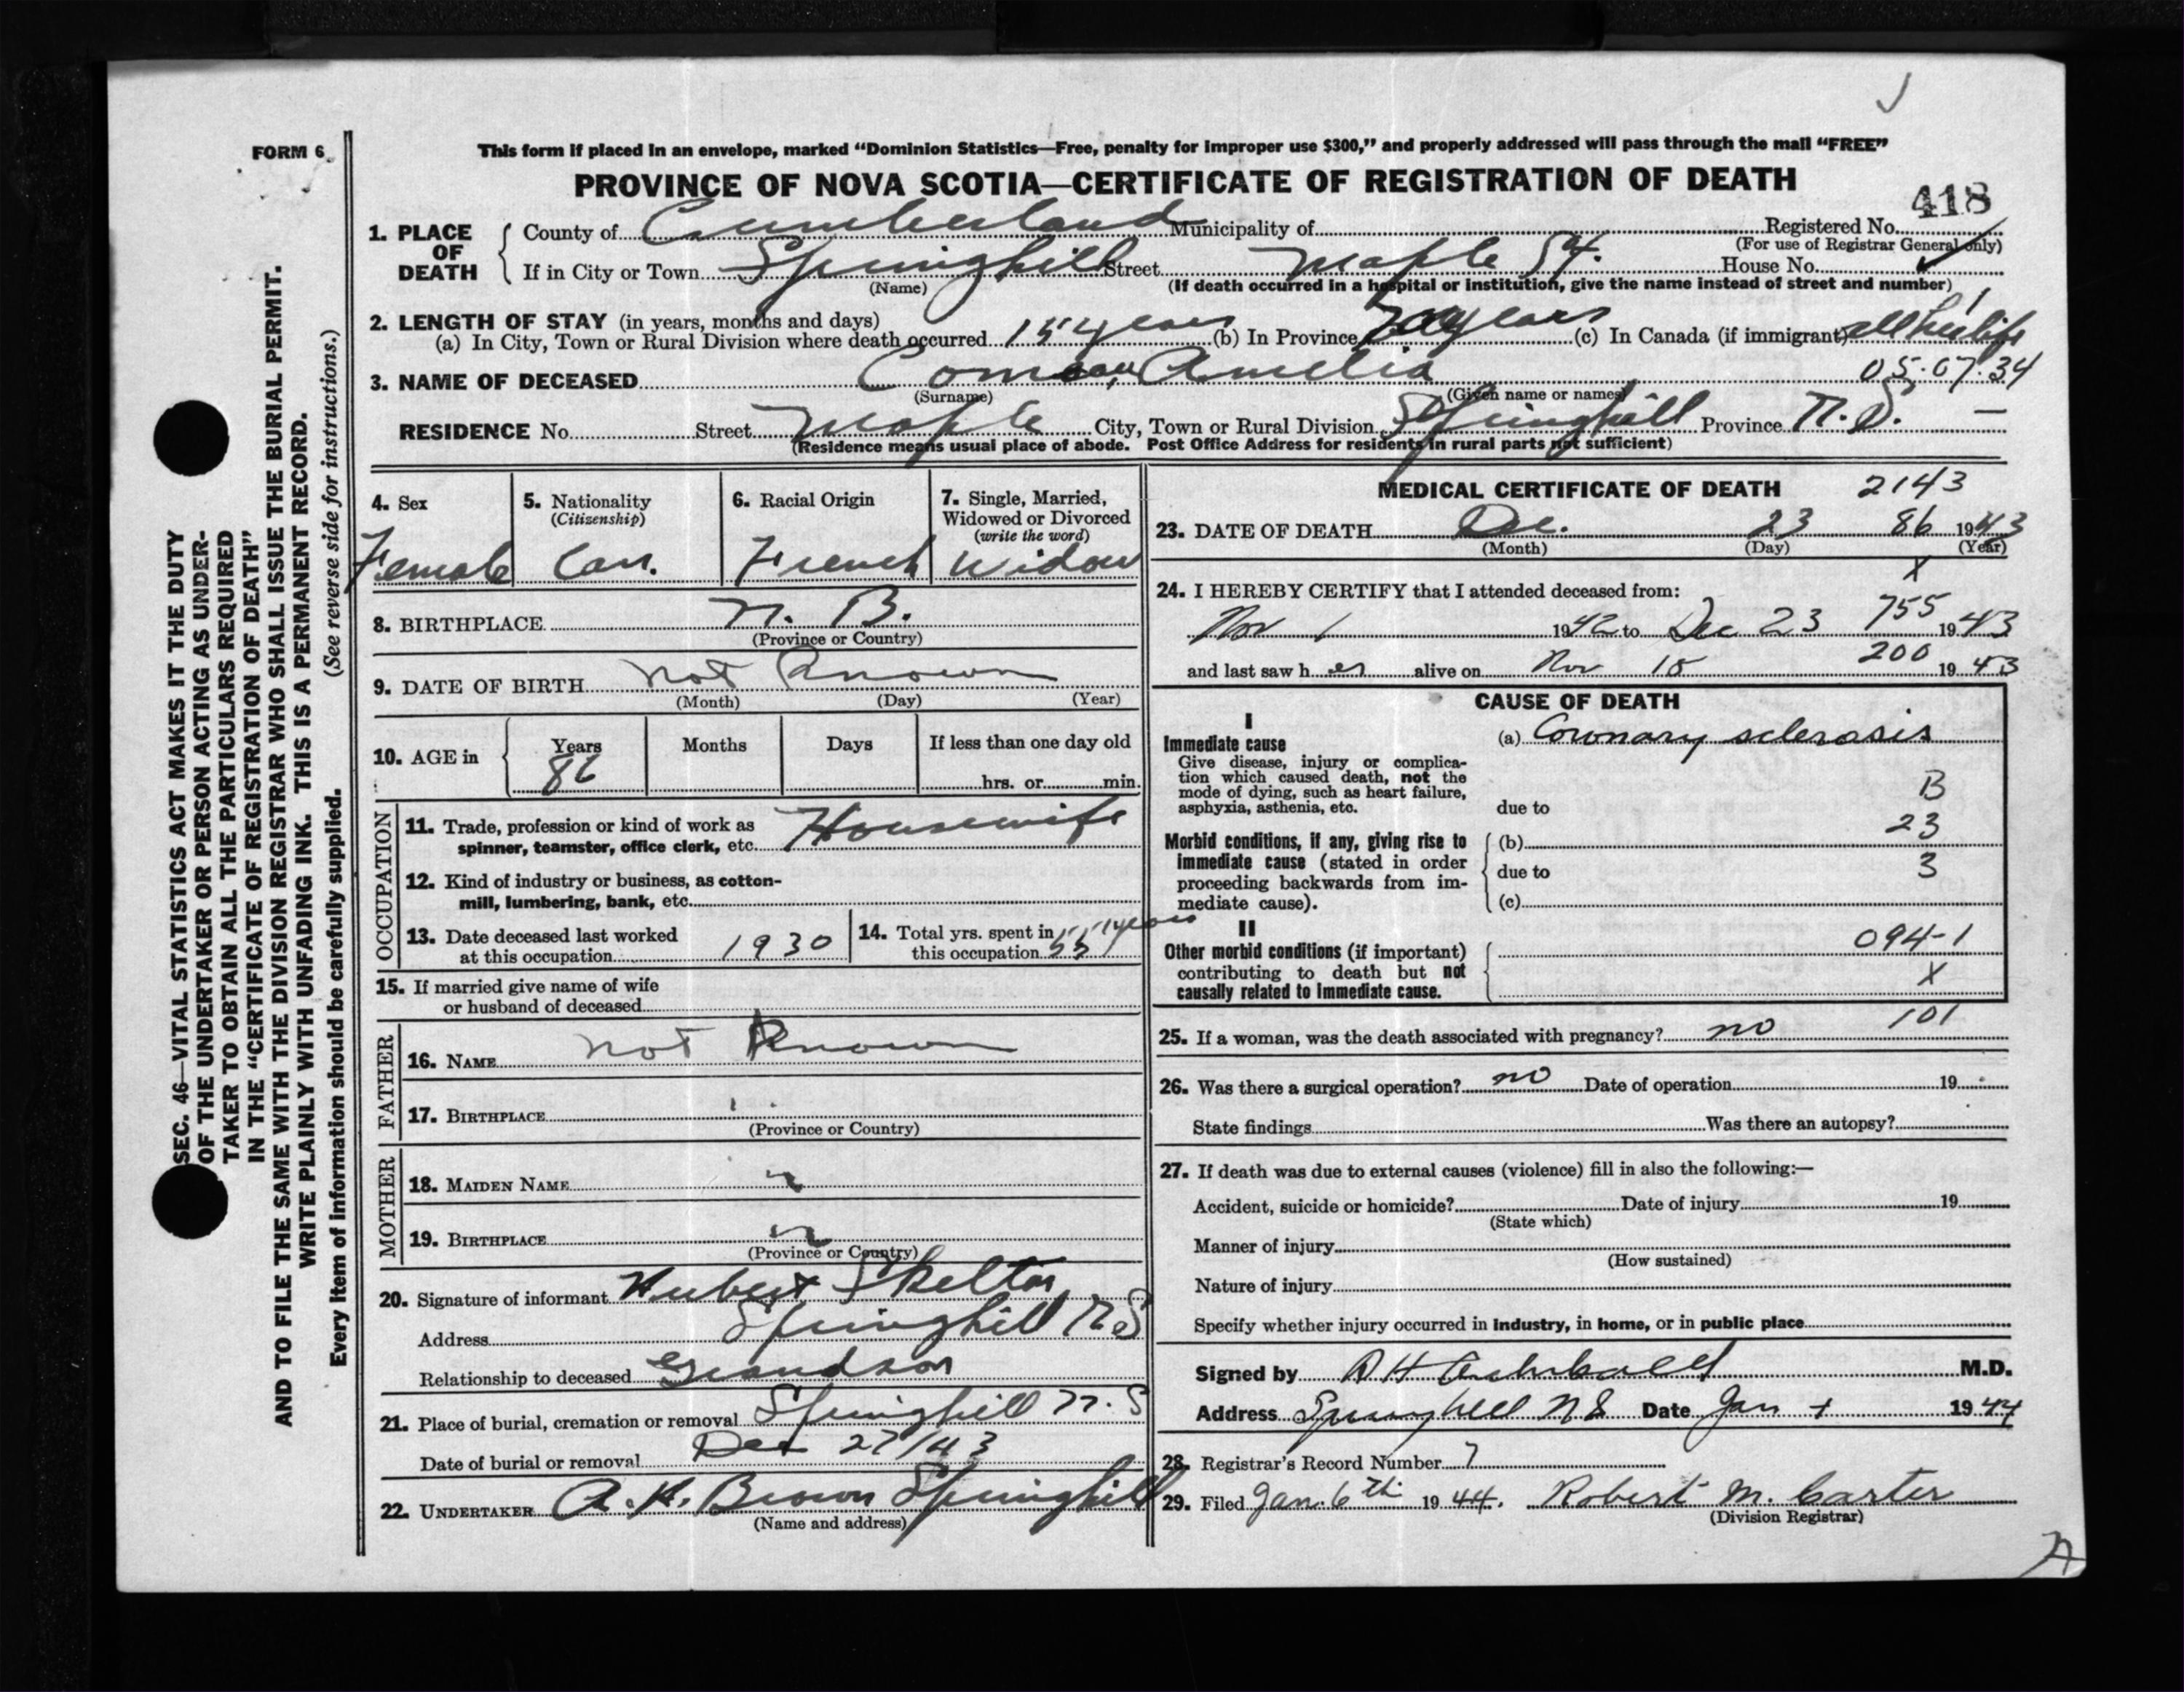 FORM 6
This form if placed in an envelope, marked “Dominion Statistics—Free, penalty for improper use $300,” and properly addressed will pass through the mail “FREE”
PROVINCE OF NOVA SCOTIA—CERTIFICATE OF REGISTRATION OF DEATH
418
1. PLACE OF DEATH County of Cumberland Municipality of Registered No.
(For use of Registrar General only)
If in City or Town Springhill Street Maple St. House No.
(Name) (If death occurred in a hospital or institution, give the name instead of street and number)
2. LENGTH OF STAY (in years, months and days)
(a) In City, Town or Rural Division where death occurred 15 years (b) In Province years (c) In Canada (if immigrant) all her life
3. NAME OF DECEASED Comeau, Amelia 05.07.34
(Surname) (Given name or names)
RESIDENCE No. Street Maple City, Town or Rural Division Springhill Province N.S. —
(Residence means usual place of abode. Post Office Address for residents in rural parts not sufficient)
4. Sex Female
5. Nationality (Citizenship) Can.
6. Racial Origin French
7. Single, Married, Widowed or Divorced (write the word) Widow
8. BIRTHPLACE N. B.
(Province or Country)
9. DATE OF BIRTH not Known
(Month) (Day) (Year)
10. AGE in Years Months Days If less than one day old
86 hrs. or min.
OCCUPATION
11. Trade, profession or kind of work as spinner, teamster, office clerk, etc. Housewife
12. Kind of industry or business, as cotton-mill, lumbering, bank, etc.
13. Date deceased last worked at this occupation 1930
14. Total yrs. spent in this occupation 55 years
15. If married give name of wife or husband of deceased
FATHER
16. NAME not Known
17. BIRTHPLACE
(Province or Country)
MOTHER
18. MAIDEN NAME
19. BIRTHPLACE
(Province or Country)
20. Signature of informant Hubert Skelton
Address Springhill N.S
Relationship to deceased Grandson
21. Place of burial, cremation or removal Springhill N.S
Date of burial or removal Dec 27/43
22. UNDERTAKER A.K. Brown Springhill
(Name and address)
MEDICAL CERTIFICATE OF DEATH 2143
23. DATE OF DEATH Dec. 23 86 1943
(Month) (Day) (Year)
X
24. I HEREBY CERTIFY that I attended deceased from:
Nov 1 1942 to Dec 23 755 1943
and last saw her alive on Nov 15 200 1943
CAUSE OF DEATH
I
Immediate cause (a) Coronary sclerosis
Give disease, injury or complication which caused death, not the mode of dying, such as heart failure, asphyxia, asthenia, etc.
B
due to
23
Morbid conditions, if any, giving rise to immediate cause (stated in order proceeding backwards from immediate cause).
(b)
due to 3
(c)
II
Other morbid conditions (if important) contributing to death but not causally related to immediate cause.
094-1
X
25. If a woman, was the death associated with pregnancy? no 101
26. Was there a surgical operation? no Date of operation 19
State findings Was there an autopsy?
27. If death was due to external causes (violence) fill in also the following:—
Accident, suicide or homicide? Date of injury 19
(State which)
Manner of injury
(How sustained)
Nature of injury
Specify whether injury occurred in industry, in home, or in public place
Signed by Archibald M.D.
Address Springhill N S Date Jan 1944
28. Registrar's Record Number 7
29. Filed Jan. 6th 1944. Robert M. Carter
(Division Registrar)
SEC. 46—VITAL STATISTICS ACT MAKES IT THE DUTY
OF THE UNDERTAKER OR PERSON ACTING AS UNDER-
TAKER TO OBTAIN ALL THE PARTICULARS REQUIRED
IN THE “CERTIFICATE OF REGISTRATION OF DEATH”
AND TO FILE THE SAME WITH THE DIVISION REGISTRAR WHO SHALL ISSUE THE BURIAL PERMIT.
WRITE PLAINLY WITH UNFADING INK. THIS IS A PERMANENT RECORD.
Every item of information should be carefully supplied. (See reverse side for instructions.)